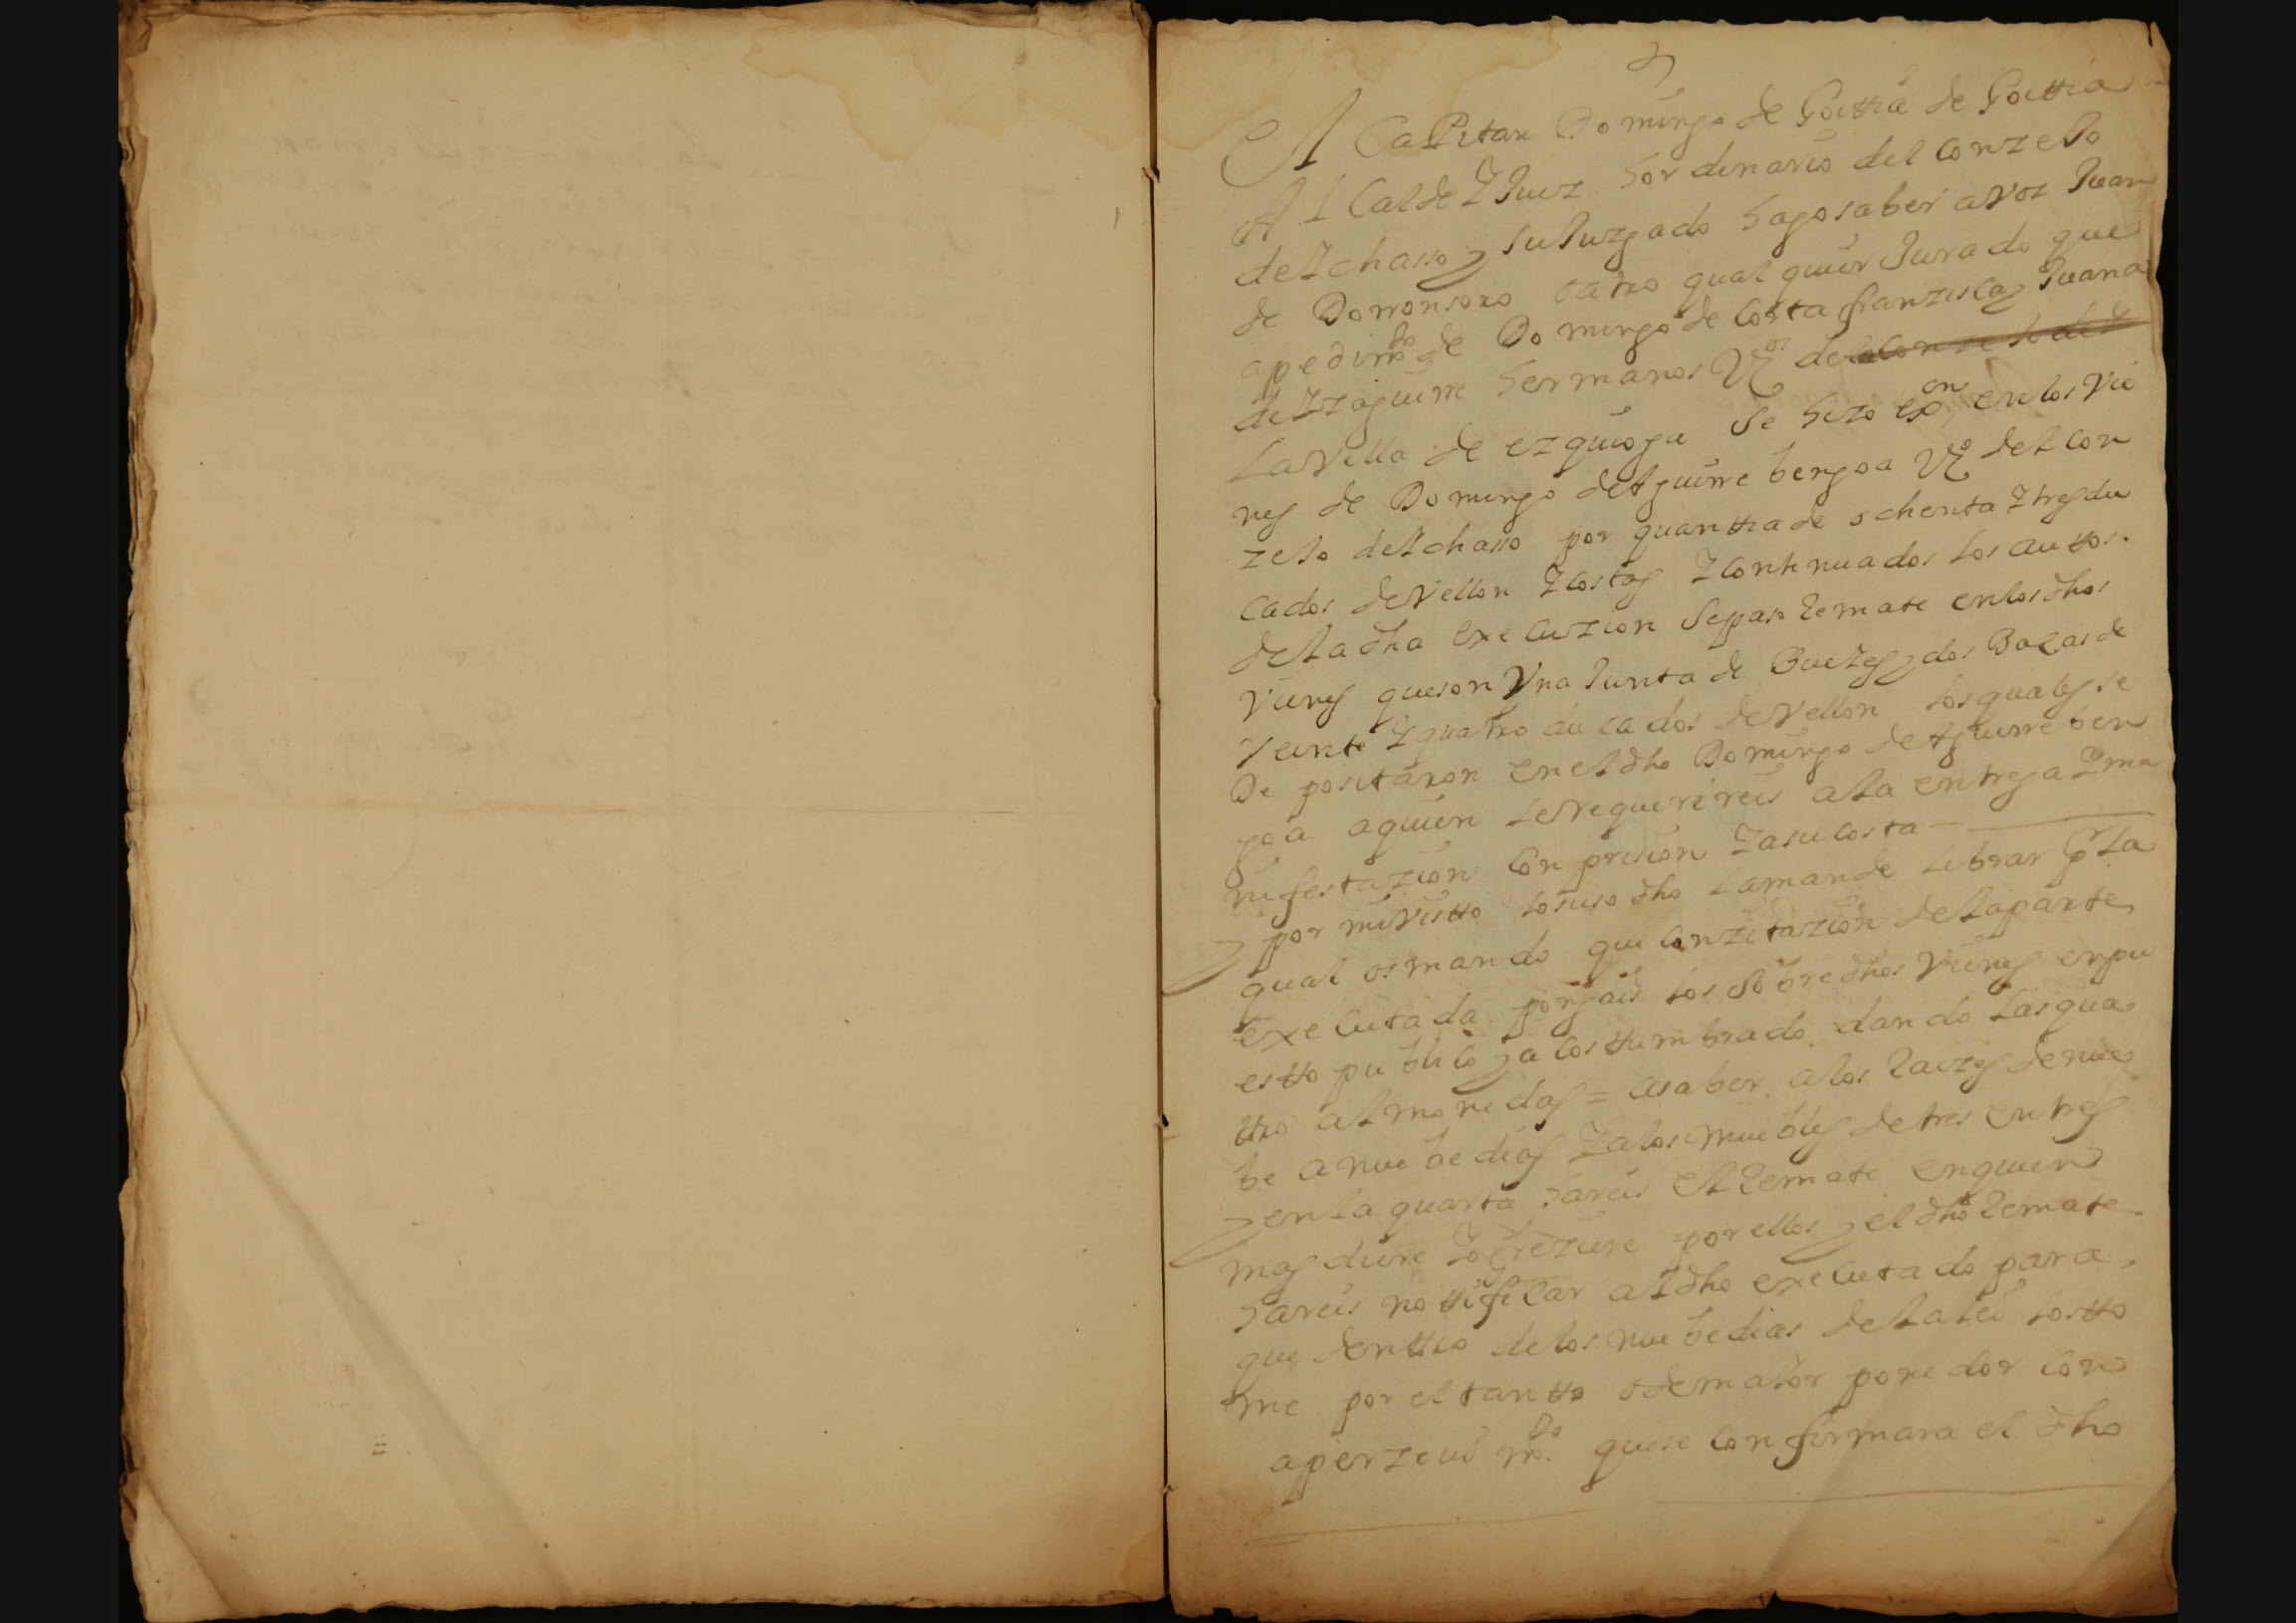 El CaPitan Domingo de Goittia de Goittia
Al Calde Y Juez hordinario del Conzejo
de Ichasso y su Juzgado hago saber a Vos Juan
de Dorronsoro o atro qual quier Jurado que
a pedimto de Domingo de Costa franzisca y Juana
de Yzaguirre hermanos Vos de el Conzejo de I
La Villa de ezquioga se hizo exon en los Vie
nes de Domingo de Aguirre bengoa Vo del Con
zejo de Ichasso por quanttia de ochenta Y tres du
cados de Vellon Y costas Y Continuados los auttos
de la dha execuzion se paso Remate en los dhos
Vienes que son Vna Junta de Buezes y dos Bacas de
Veinte Y quatro ducados de Vellon los quales se
De positaron en el dho Domingo de Aguirre ben
goa a quien le requerireis a la entrega Y ma
nifestazion con prision Y a su costa
y por mi Vistto lo suso dho la mande librar por La
qual os mando que con zitazion de la parte
executada pongais los sobre dhos Vienes en pu
estto publico y acosttumbrado dando las qua
ttro almonedas = a saber a los Raizes de nue
be a nuebe dias Y a los muebles de tres en tres
y en la quarta hareis el Remate en quien
mas diere Y ofreziere por ellos y el dho Remate
hareis nottificar al dho executado para
que denttro de los nuebe dias de la lei los tto
me por el tantto o de maior ponedor con
aperzeuimto que se confirmara el dho